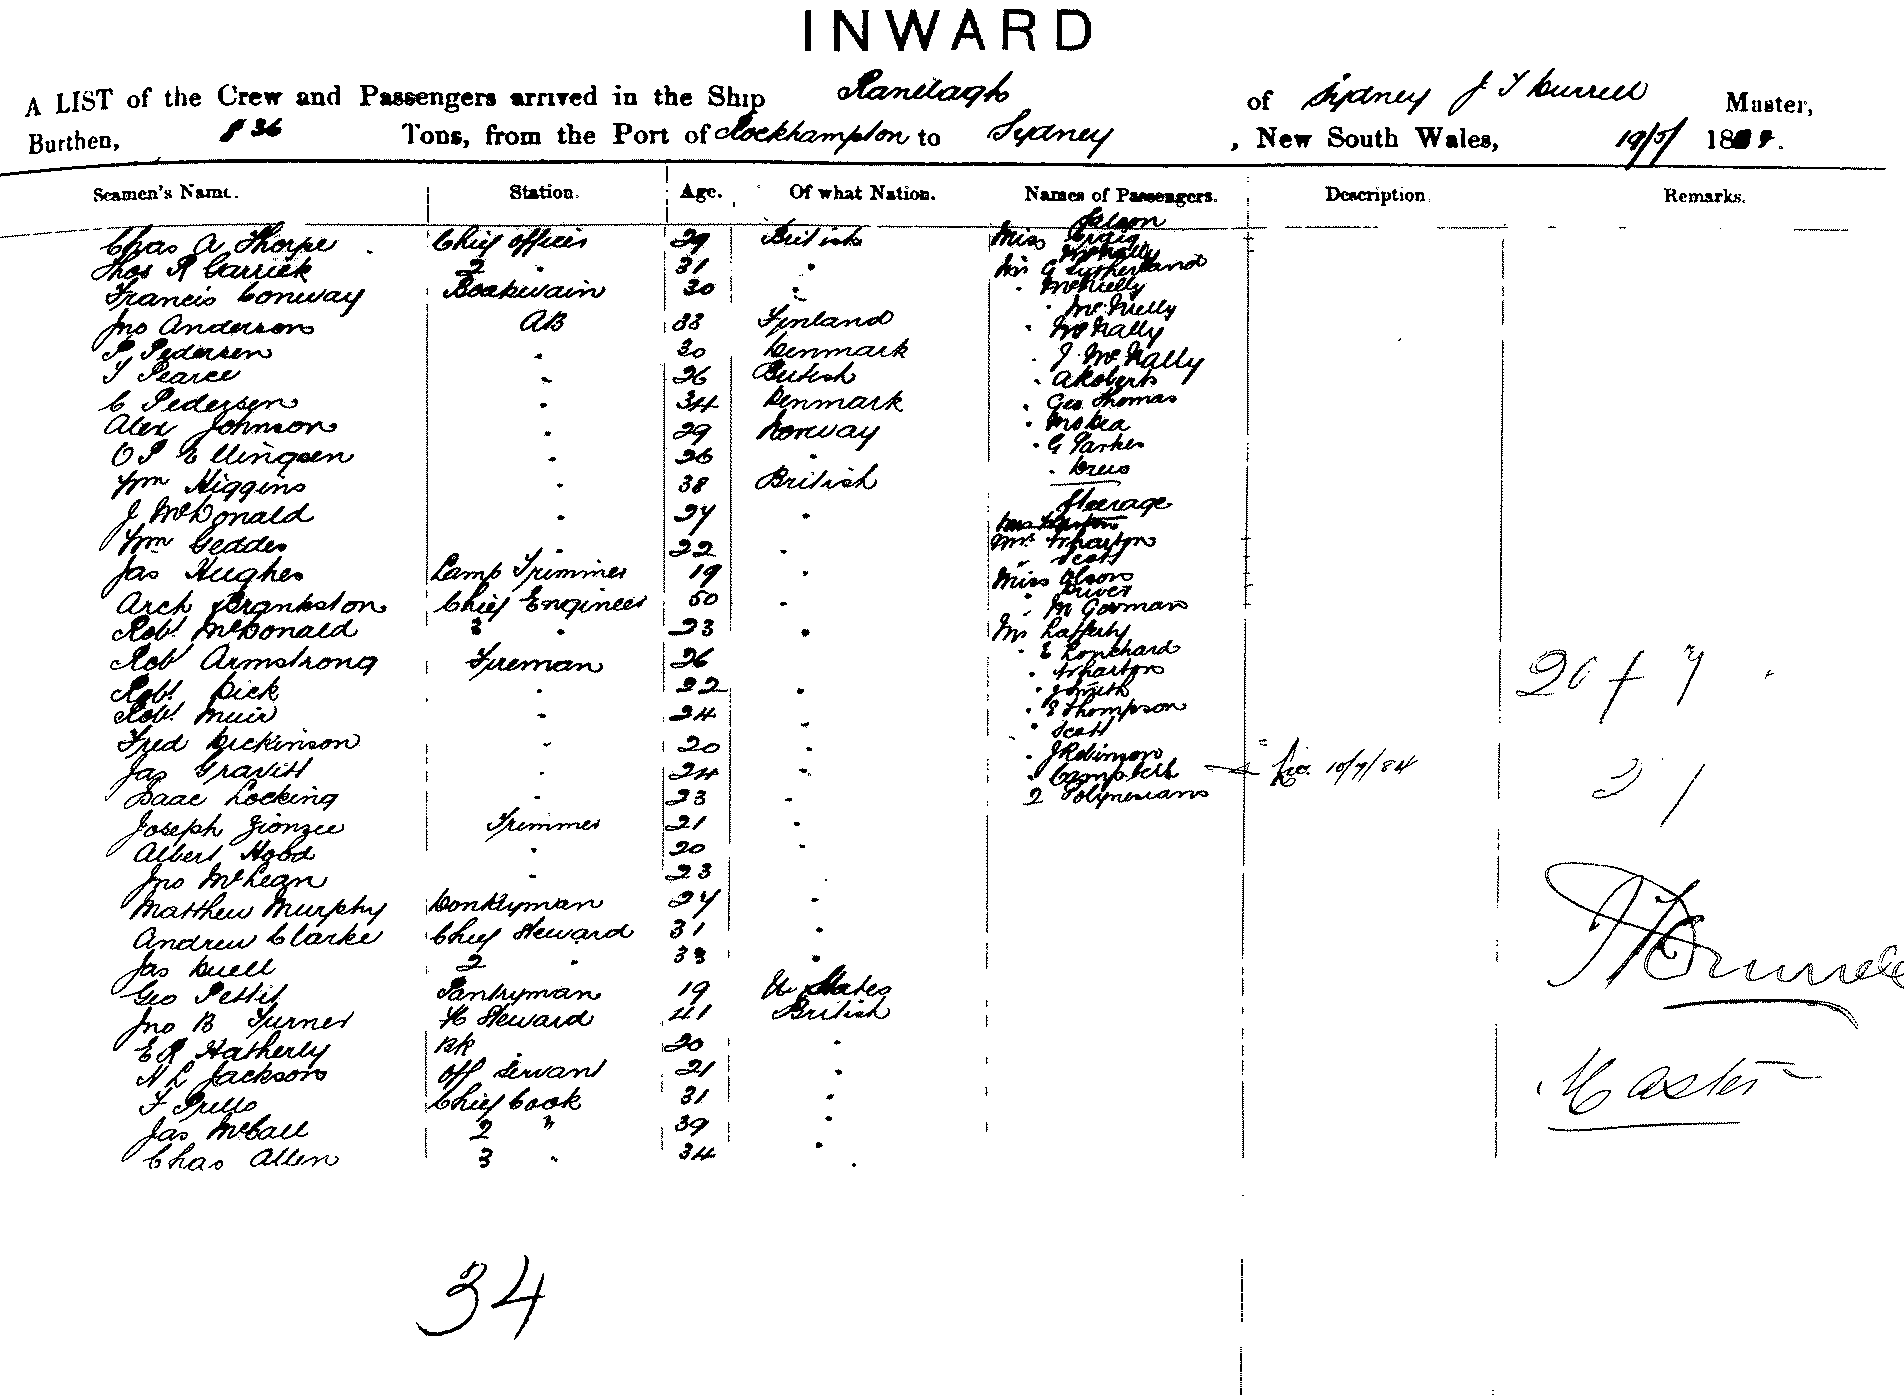 INWARD
A LIST of the Crew and Passengers arrived in the Ship Ranelagh of Sydney J T Burrell Master,
Burthen, 836 Tons, from the Port of Rockhampton to Sydney, New South Wales, 19/5/ 1884.
Seamen's Name. Station. Age. Of what Nation. Names of Passengers. Description Remarks.
Saloon
Chas A Thorpe Chief Officer 29 British Miss Craig
" McNally
Thos R Garrick 2 " 31 " Mr G Sutherland
Francis Conway Boatswain 30 " " McNielly
" McNielly
Jno Anderson AB 33 Finland " McNally
P. Pedersen " 30 Denmark " J. McNally
T Pearce " 26 British " A Roberts
C Pedersen " 34 Denmark " Geo Thomas
Alex Johnson " 29 Norway "
O P Ellingsen " 26 " " G Parker
Wm Higgins " 38 British "
Steerage
J McDonald " 24 "
Wm Geddes " 22 " Mrs Wharton
" Scott
Jas Hughes Lamp Trimmer 19 " Miss Olson
Arch Brankston Chief Engineer 50 " " M Gorman
Robt McDonald 2 " 23 " Mr Rafferty
Robt Armstrong Fireman 26 " E Lonchard
" Wharton
Robt Dick " 22 " " J Smith
Robt Muir " 24 " " E Thompson
" Scott
Fred Dickinson " 20 " " J Robinson
Jas Gravitt " 24 " " Campbell 10/7/84
Isaac Locking " 23 " 2 Polynesians
Joseph Zionzee Trimmer 21 "
Albert Hood " 20 "
Jno McLean " 23
Matthew Murphy Donkeyman 24 "
Andrew Clarke Chief Steward 31 "
Jas Duell 2 " 33 "
Geo Pettit Pantryman 19 U States
Jno B Turner F Steward 41 British
E R Hatherly BK 20 "
N L Jackson Off Servant 21 "
F Prello Chief Cook 31 "
Jas McCall 2 " 39 "
Chas Allen 3 " 34 "
20 + 7
31
J T Burrell
Master
34